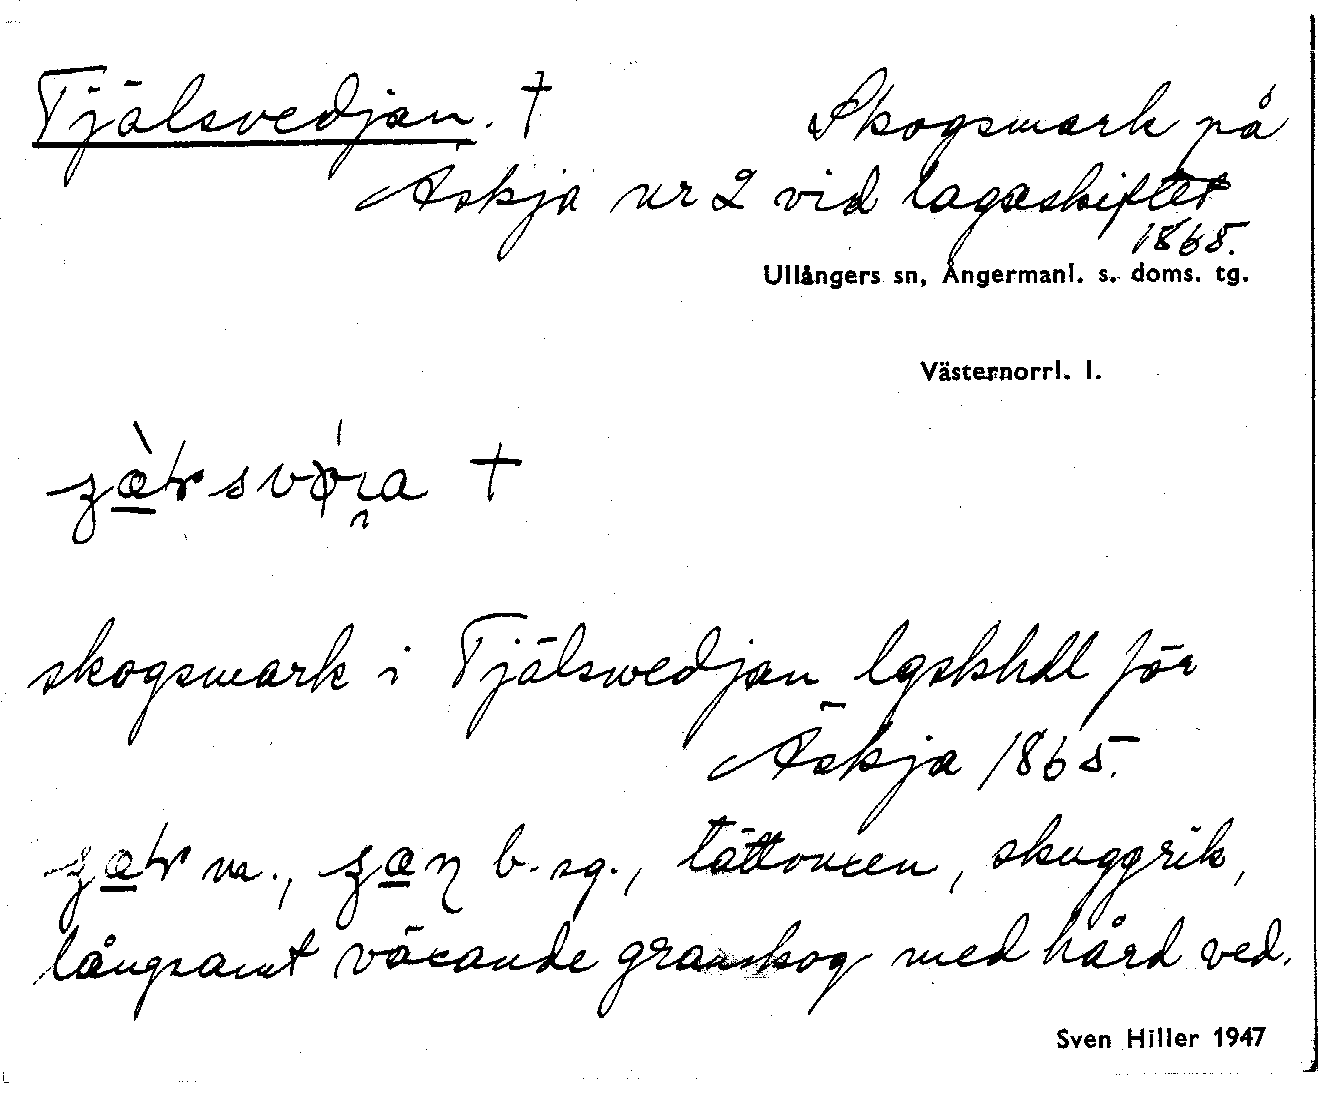 Tjälsvedjan. † Skogsmark på
Äskja nr 2 vid lagaskiftet
1865.
Ullångers sn, Ångermanl. s. doms. tg.
Västernorrl. l.
†
skogsmark i Tjälswedjan lgskhdl för
Äskja 1865.
m., b. sg., tättvuxen, skuggrik,
långsamt växande granskog med hård ved.
Sven Hiller 1947